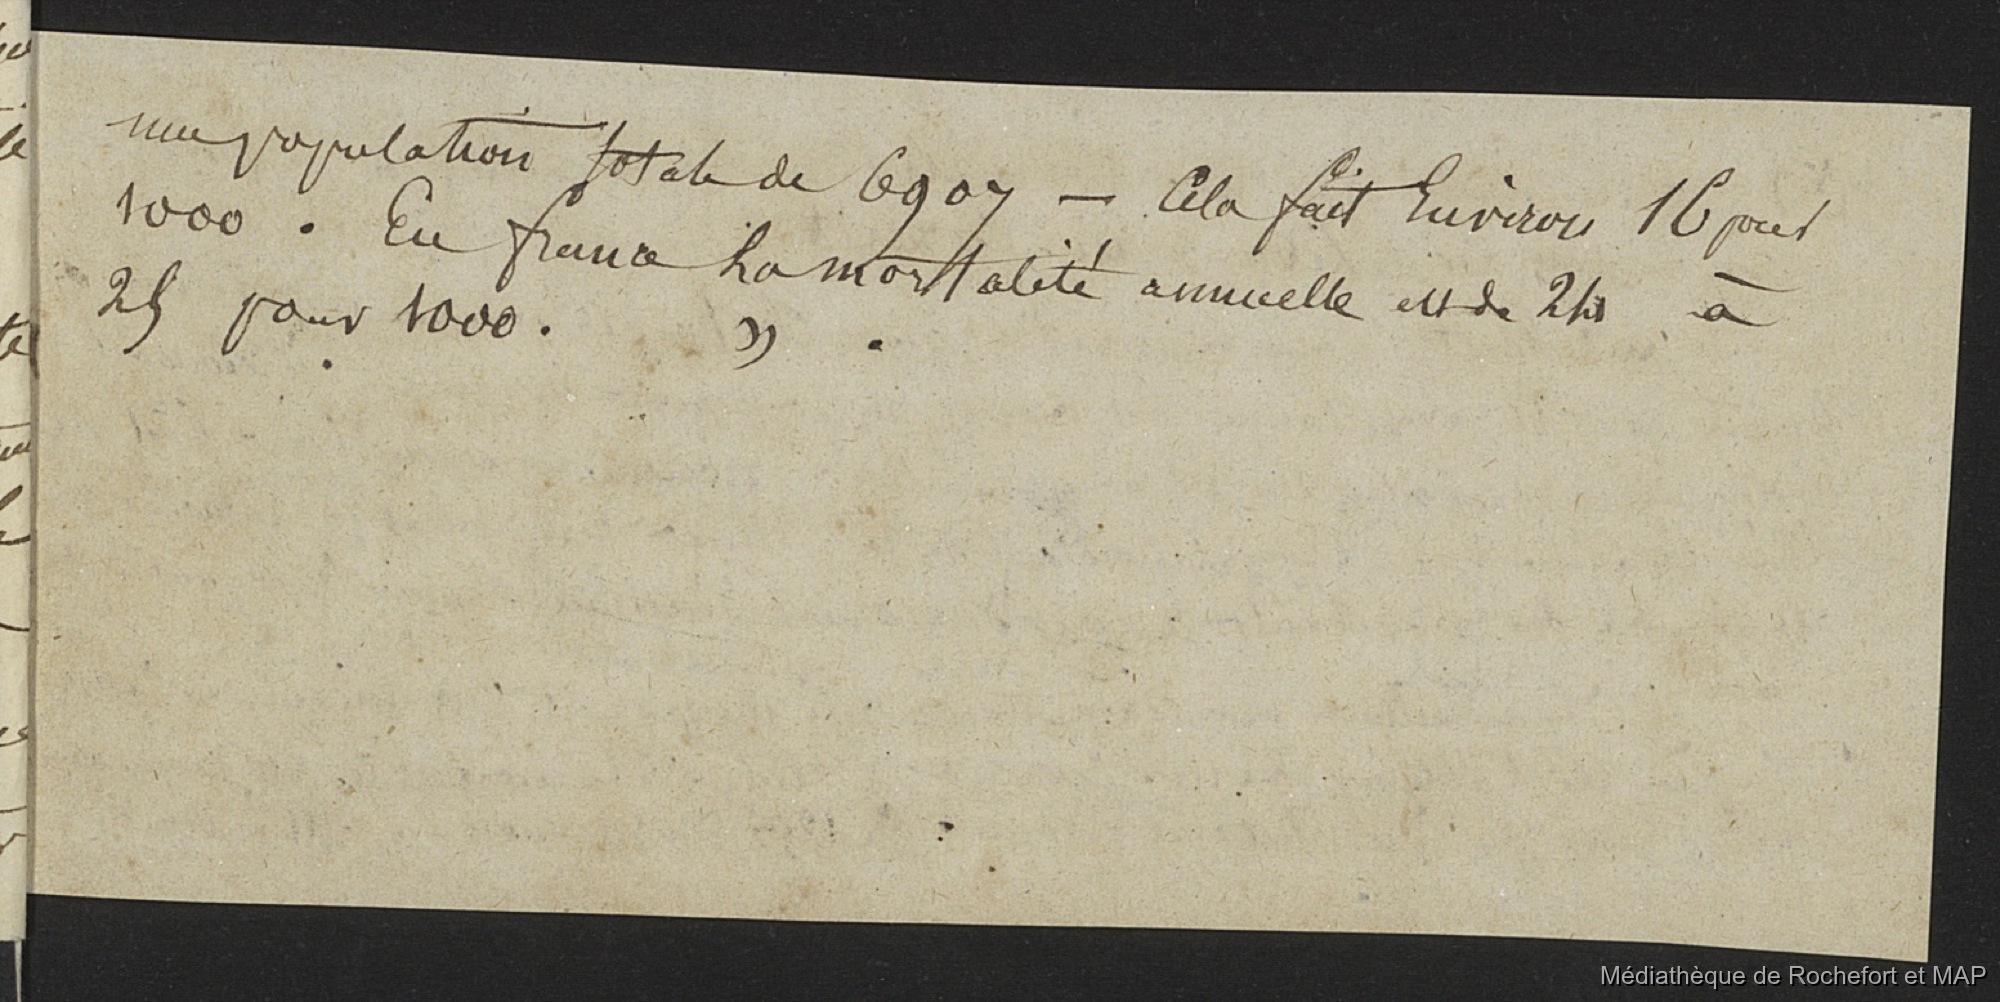 une population totale de 6907 — Cela fait Environ 16 pour
1000. En france La mortalité annuelle est de 24 à
25 pour 1000. »
Médiathèque de Rochefort et MAP